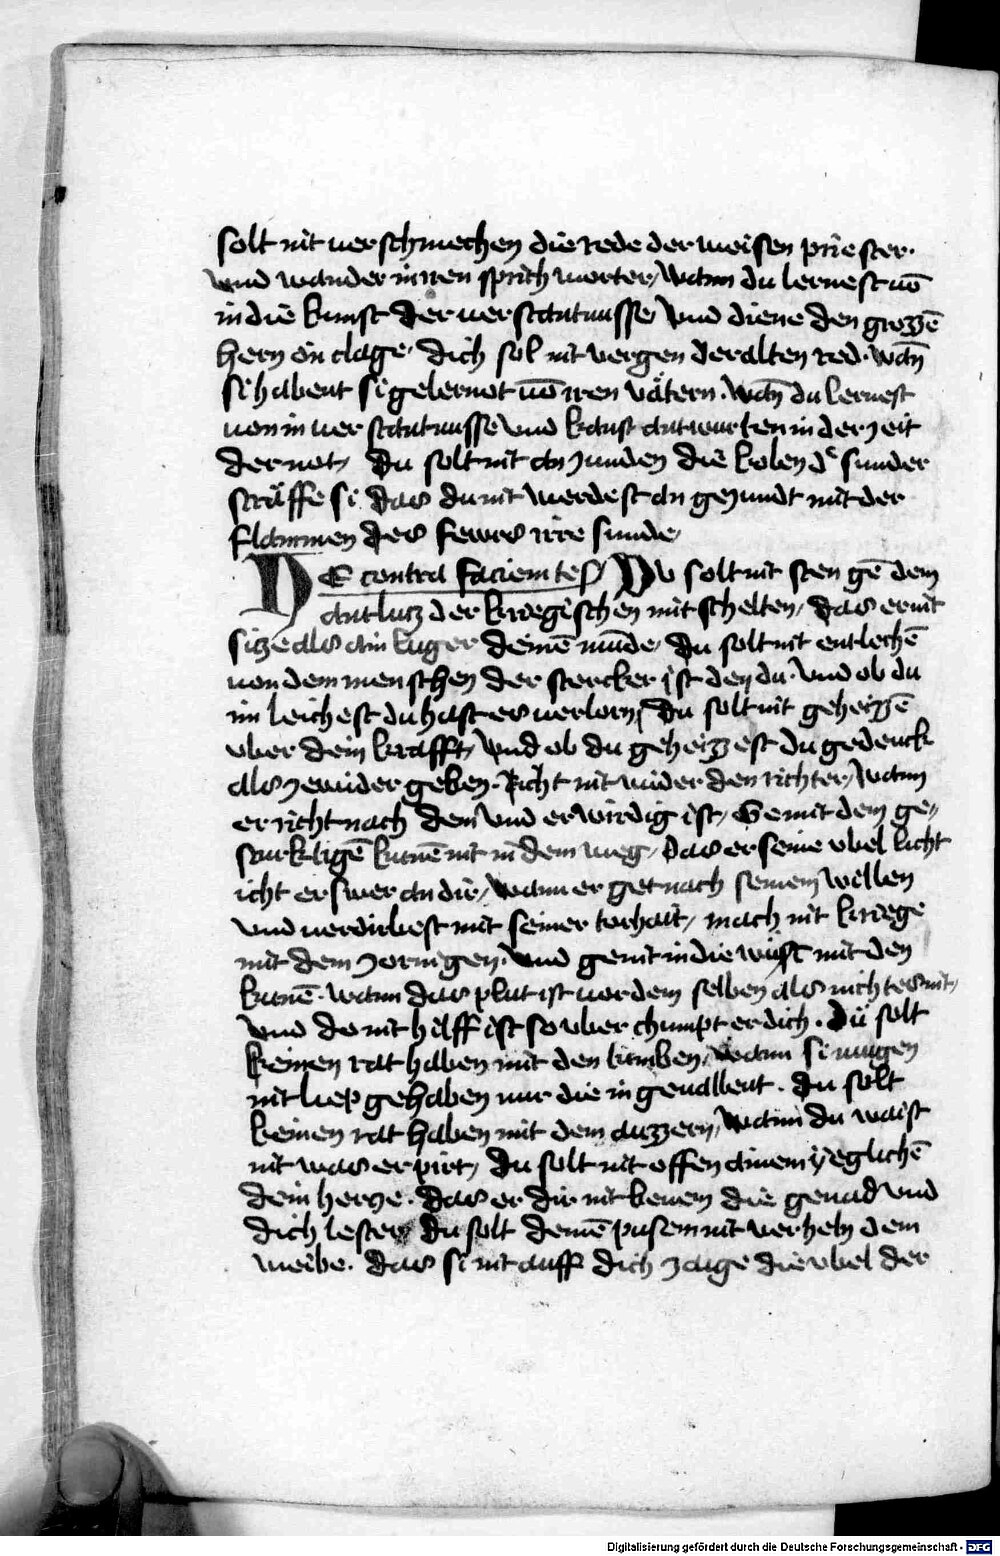 solt nit uerschmechen die rede der weisen priester.
vnd wander in iren sprichworter, wann du lernest uō
in die kunst der uerstantnusse, vnd diene den grozzē
hern on clage. dich sol nit vergen der alten red. wañ
si habent si gelernot uō iren vätern. wañ du lernest
uon in uerstantnusse vnd kanst antwurten in der zeit
der not, du solt nit anzunden die kolen dͤ sunder
sträffe si das du nit werdest an gezundt mit der
flammen des fewrs irre sunde,
DE contra faciem tes / DV solt nit sten gē dem
antlutz der kriegischen mit schelten, das er nit
size als ain luger deinē mūde, du solt nit entlechē
uon dem menschen der stercker ist den du. vnd ob du
im leichest du hast es uerlorn, du solt nit geheizzē
vber dein krafft, vnd ob du geheizzest du gedenck
als ze wider geben. Richt nit wider den richter, wann
er richt nach dem vnd er wirdig ist, Ge mit dem ge-
kunē nit in dem weg, das er seine vbel licht
icht er swer an dir, wann er get nach seinem willen
vnd uerdirbest mit seiner torhait, mach nit kriege
mit dem zornigen. vnd ge nit in die wüst mit den
kunē. wann das plut ist uor dem selben als nichtes nit,
vnd do nit hilff ist so vber chumpt er dich. Dü solt
keinen rat haben mit den tumben, wann si mugen
nit liep gehaben nur die in geuallent. du solt
keinen rat haben mit dem auzzern, wann du waist
nit was er pirt, du solt nit offen ainem yeglichē
dein herze. das er dir nit benem die genad vnd
dich lester, du solt deinē pusem nit verheln dem
weibe. das si nit auff dich zaige die vbel der
Digitalisierung gefördert durch die Deutsche Forschungsgemeinschaft - DFG